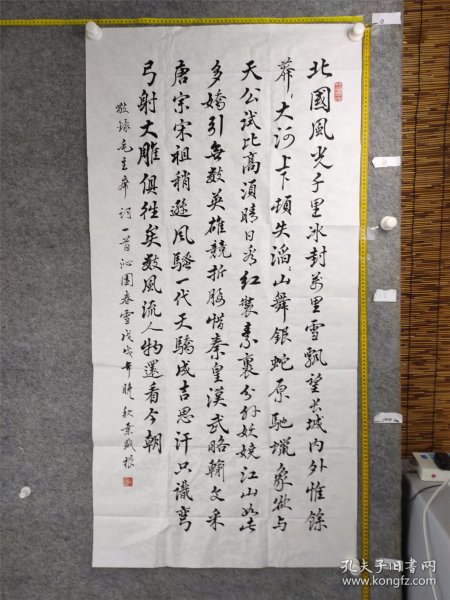 北國風光千里冰封萬里雪飄望长城内外惟餘
莽〻大河上下頓失滔〻山舞銀蛇原馳蠟象欲与
天公试比高须晴日看红装素裹分外妖娆江山如此
多嬌引无数英雄競折腰惜秦皇漢武略輸文采
唐宗宋祖稍遜风骚一代天驕成吉思汗只識彎
弓射大雕俱往矣数風流人物還看今朝
敬錄毛主席词一首沁園春雪戊戌年晚秋
孔夫子旧书网
www.kongfz.com